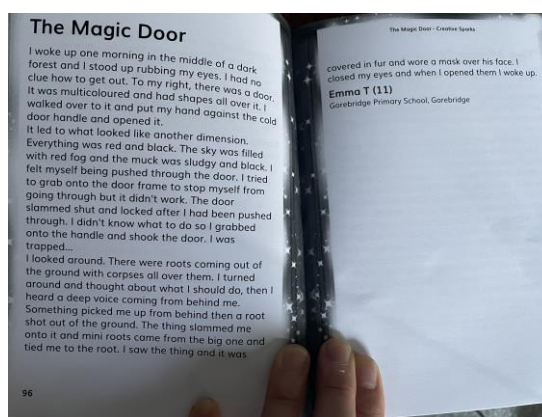 The Magic Door
I woke up one morning in the middle of a dark
forest and I stood up rubbing my eyes. I had no
clue how to get out. To my right, there was a door.
It was multicoloured and had shapes all over it. I
walked over to it and put my hand against the cold
door handle and opened it.
It led to what looked like another dimension.
Everything was red and black. The sky was filled
with red fog and the muck was sludgy and black. I
felt myself being pushed through the door. I tried
to grab onto the door frame to stop myself from
going through but it didn't work. The door
slammed shut and locked after I had been pushed
through. I didn't know what to do so I grabbed
onto the handle and shook the door. I was
trapped...
I looked around. There were roots coming out of
the ground with corpses all over them. I turned
around and thought about what I should do, then I
heard a deep voice coming from behind me.
Something picked me up from behind then a root
shot out of the ground. The thing slammed me
onto it and mini roots came from the big one and
tied me to the root. I saw the thing and it was
96
The Magic Door - Creative Sparks
covered in fur and wore a mask over his face. I
closed my eyes and when I opened them I woke up.
Emma T (11)
Gorebridge Primary School, Gorebridge